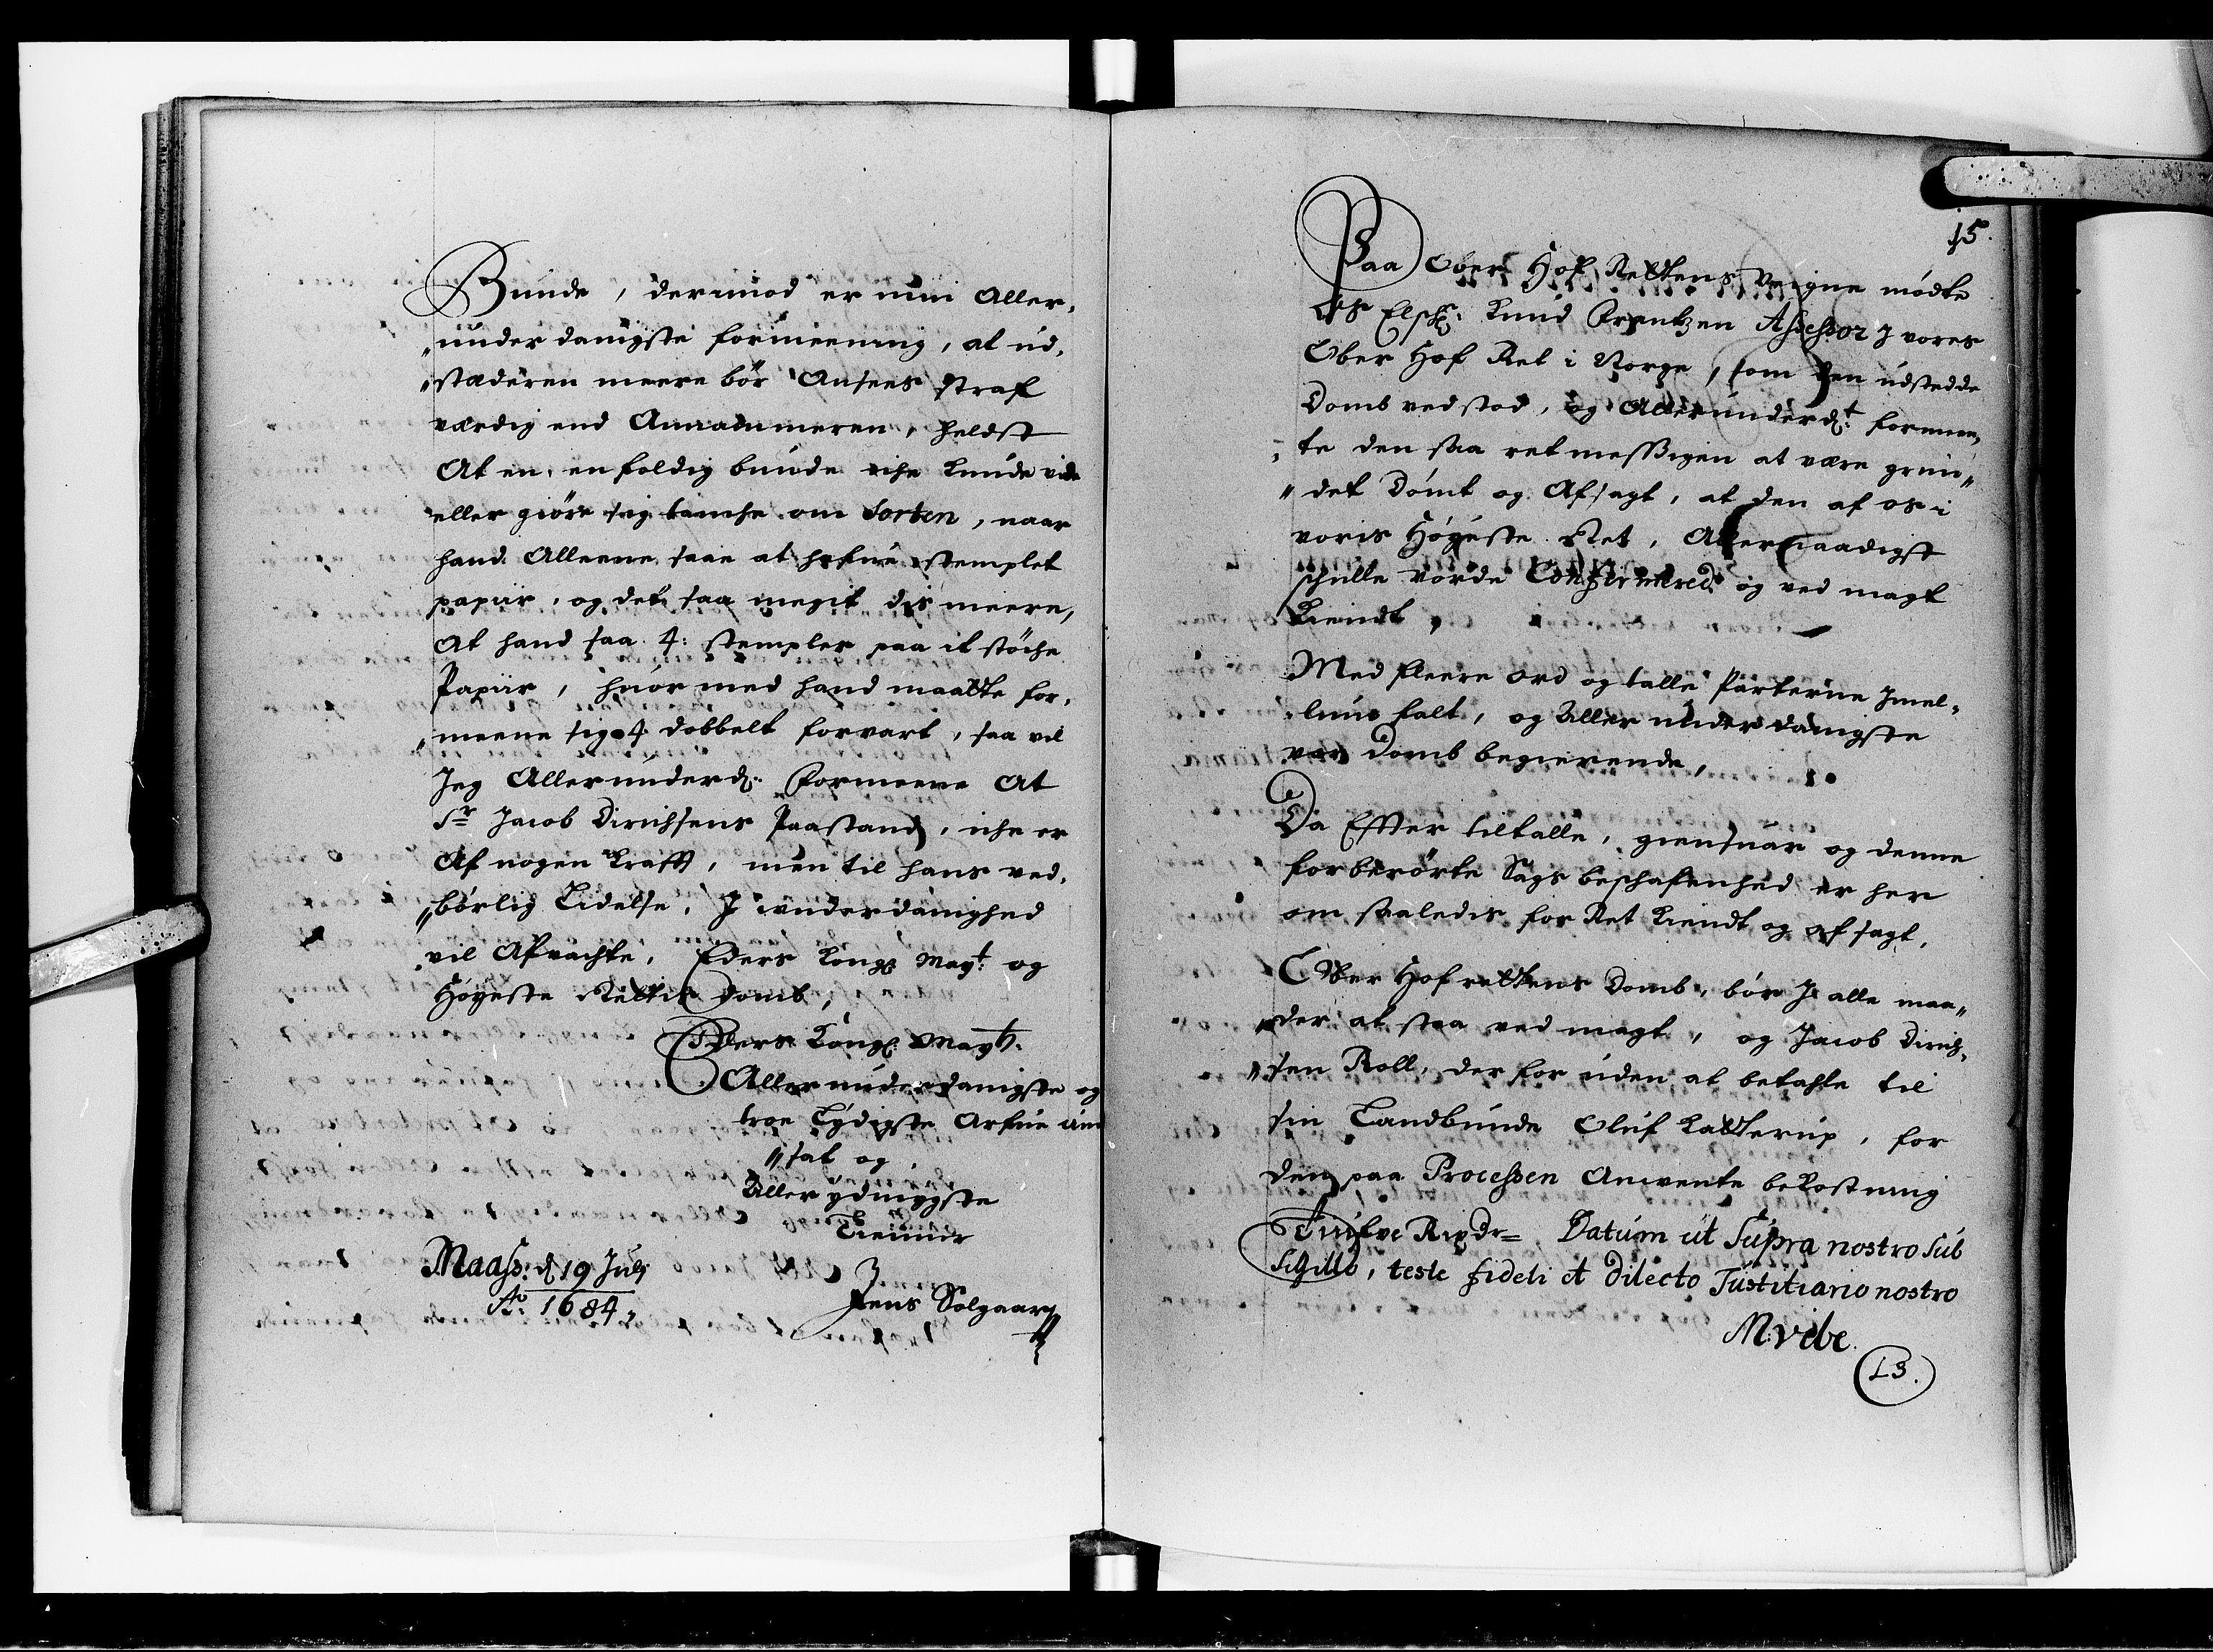 Bunde, derimod er min Aller,
„underdanigste formeening, at ud,
„stæderen meere bör Ansees straf
værdig end Annammeren, heldst
At en, enfoldig bunde iche kunde vide
eller giöre sig tanche om Sorten, naar
hand Alleene saae at hafue stemplet
papiir, og det saa megit dis meere,
At hand saa 4: stempler paa it stöche
Papiir, huor med hand maatte for,
„meene sig 4 dobbelt forvart, saa vil
Jeg Allerunderd: formeene At
Sr Jacob Dirichsens Paastand, iche er
Af nogen Krafft, men til hans ved,
„börlig Lidelse, J underdanighed
vil Afvachte, Eders Kong: Mayt: og
Höyeste Rettis Domb,
Eders Kong: Mayts:
Allerunderdanigste og
troe Lydigste Arfue und
„sat og
Aller ydmygste
Tienner
Maass: d 19 Julij
Ao: 1684,
Jens Solgaard
15.
Paa Ober Hof Rettens Veigne mödte
Os Elsch: Knud Arentzen Assessor J vores
Ober Hof Ret i Norge, som den udstedde
Domb vedstod, og Allerunderdt: formeen,
„te den saa retmessigen at være grun„
„det Dömt og Afsagt, at den af os i
voris Höyeste Ret, Allernaadigst
schulle vorde Confirmered og ved magt
Kiendt,
Med fleere Ord og talle Parterne Jmel,
lum falt, og Aller underdanigste
vor Domb begierende,
Da Effter tiltalle, giensuar og denne
forberörte Sags beschafenhed er her
om saaledis for Ret Kiendt og afsagt,
Ober Hofrettens Domb, bör J alle maa„
„der at staa ved magt, og Jacob Dirich,
„sen Roll, der for uden at betahle til
sin Landbunde Oluf Katterup, for
den paa Processen Anvente bekostning
Tiufve Rixdr= Datum ut Supra nostro Sub
Sigillo, teste fideli et Dilecto Justitiario nostro
M: vibe.
L S.